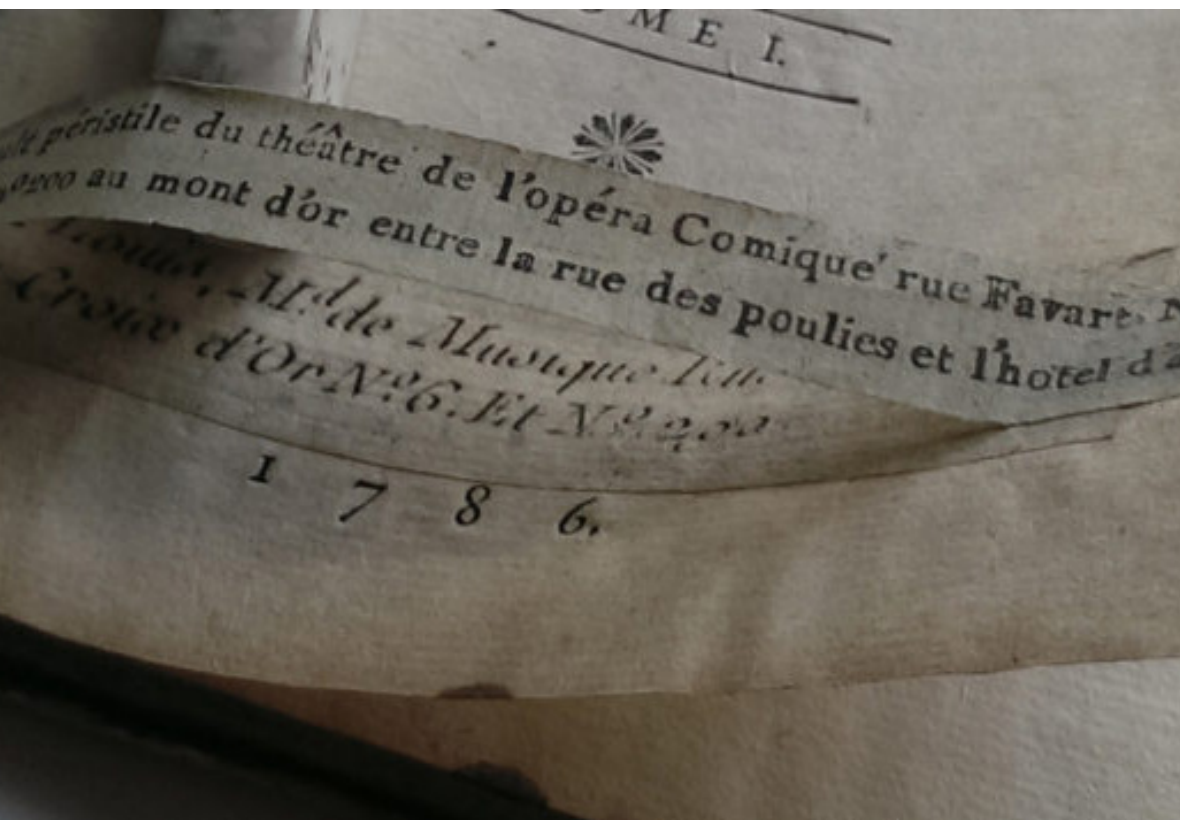 OME I.
péristile du théâtre de l'opéra Comique rue Favart. N
0200 au mont d'or entre la rue des poulies et l'hotel d'a
Louis, M.d de Musique
Croix d'Or N.o 6. Et N.o 200
1786.